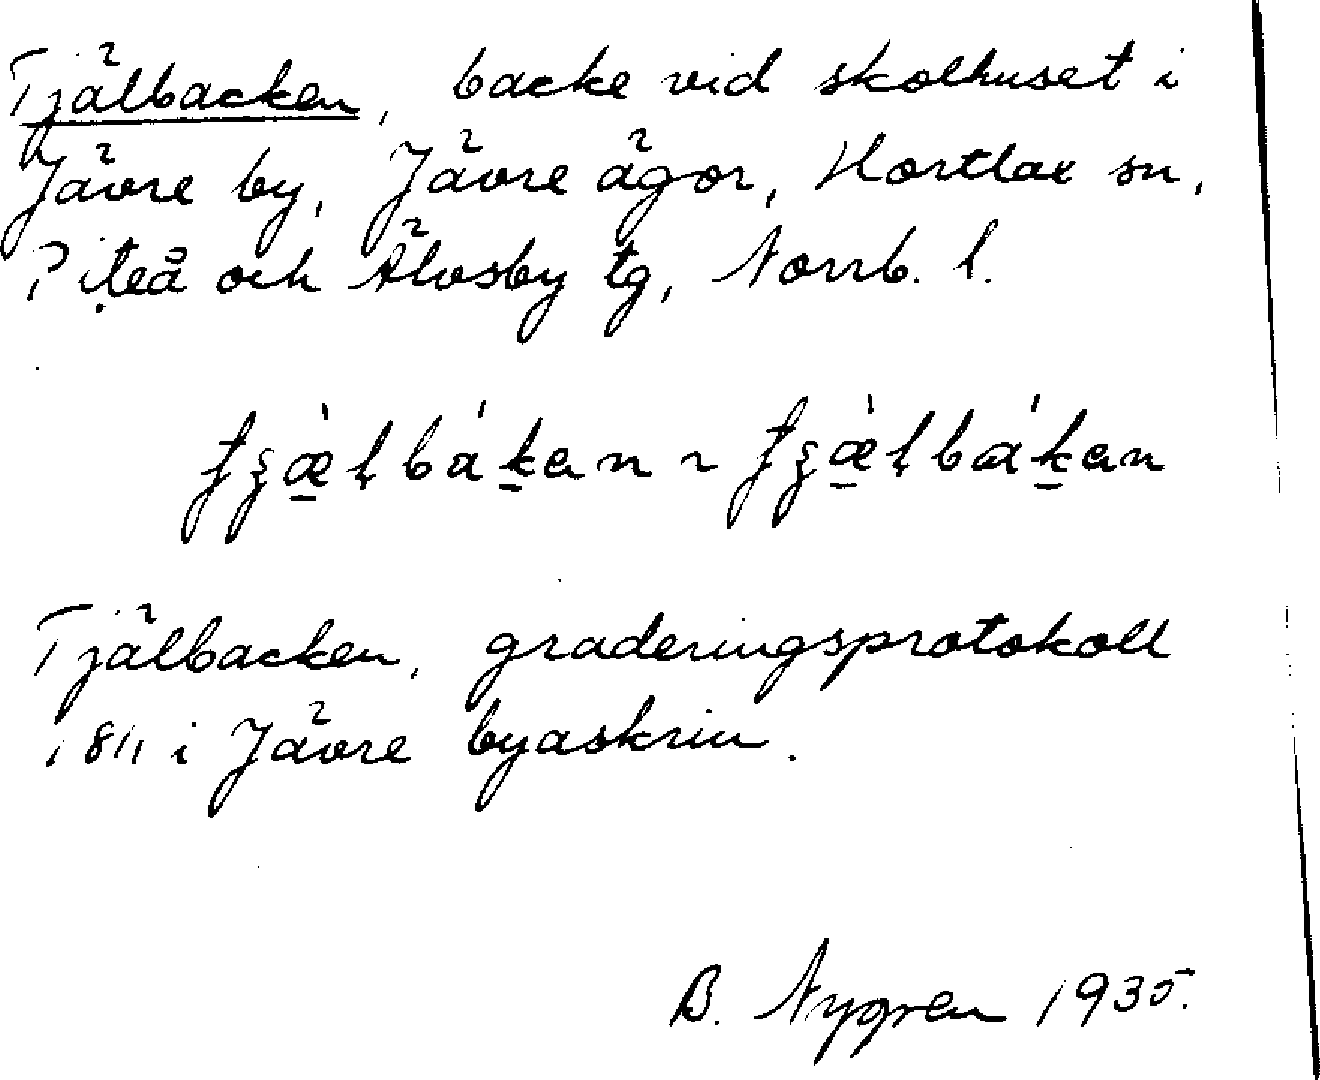 Tjälbacken, backe vid skolhuset i
Jävre by, Jävre ägor, Hortlax sn,
Piteå och Älvsby tg, Norrb. l.
Tjälbacken, graderingsprotokoll
1811 i Jävre byaskrin.
B. Nygren 1935.